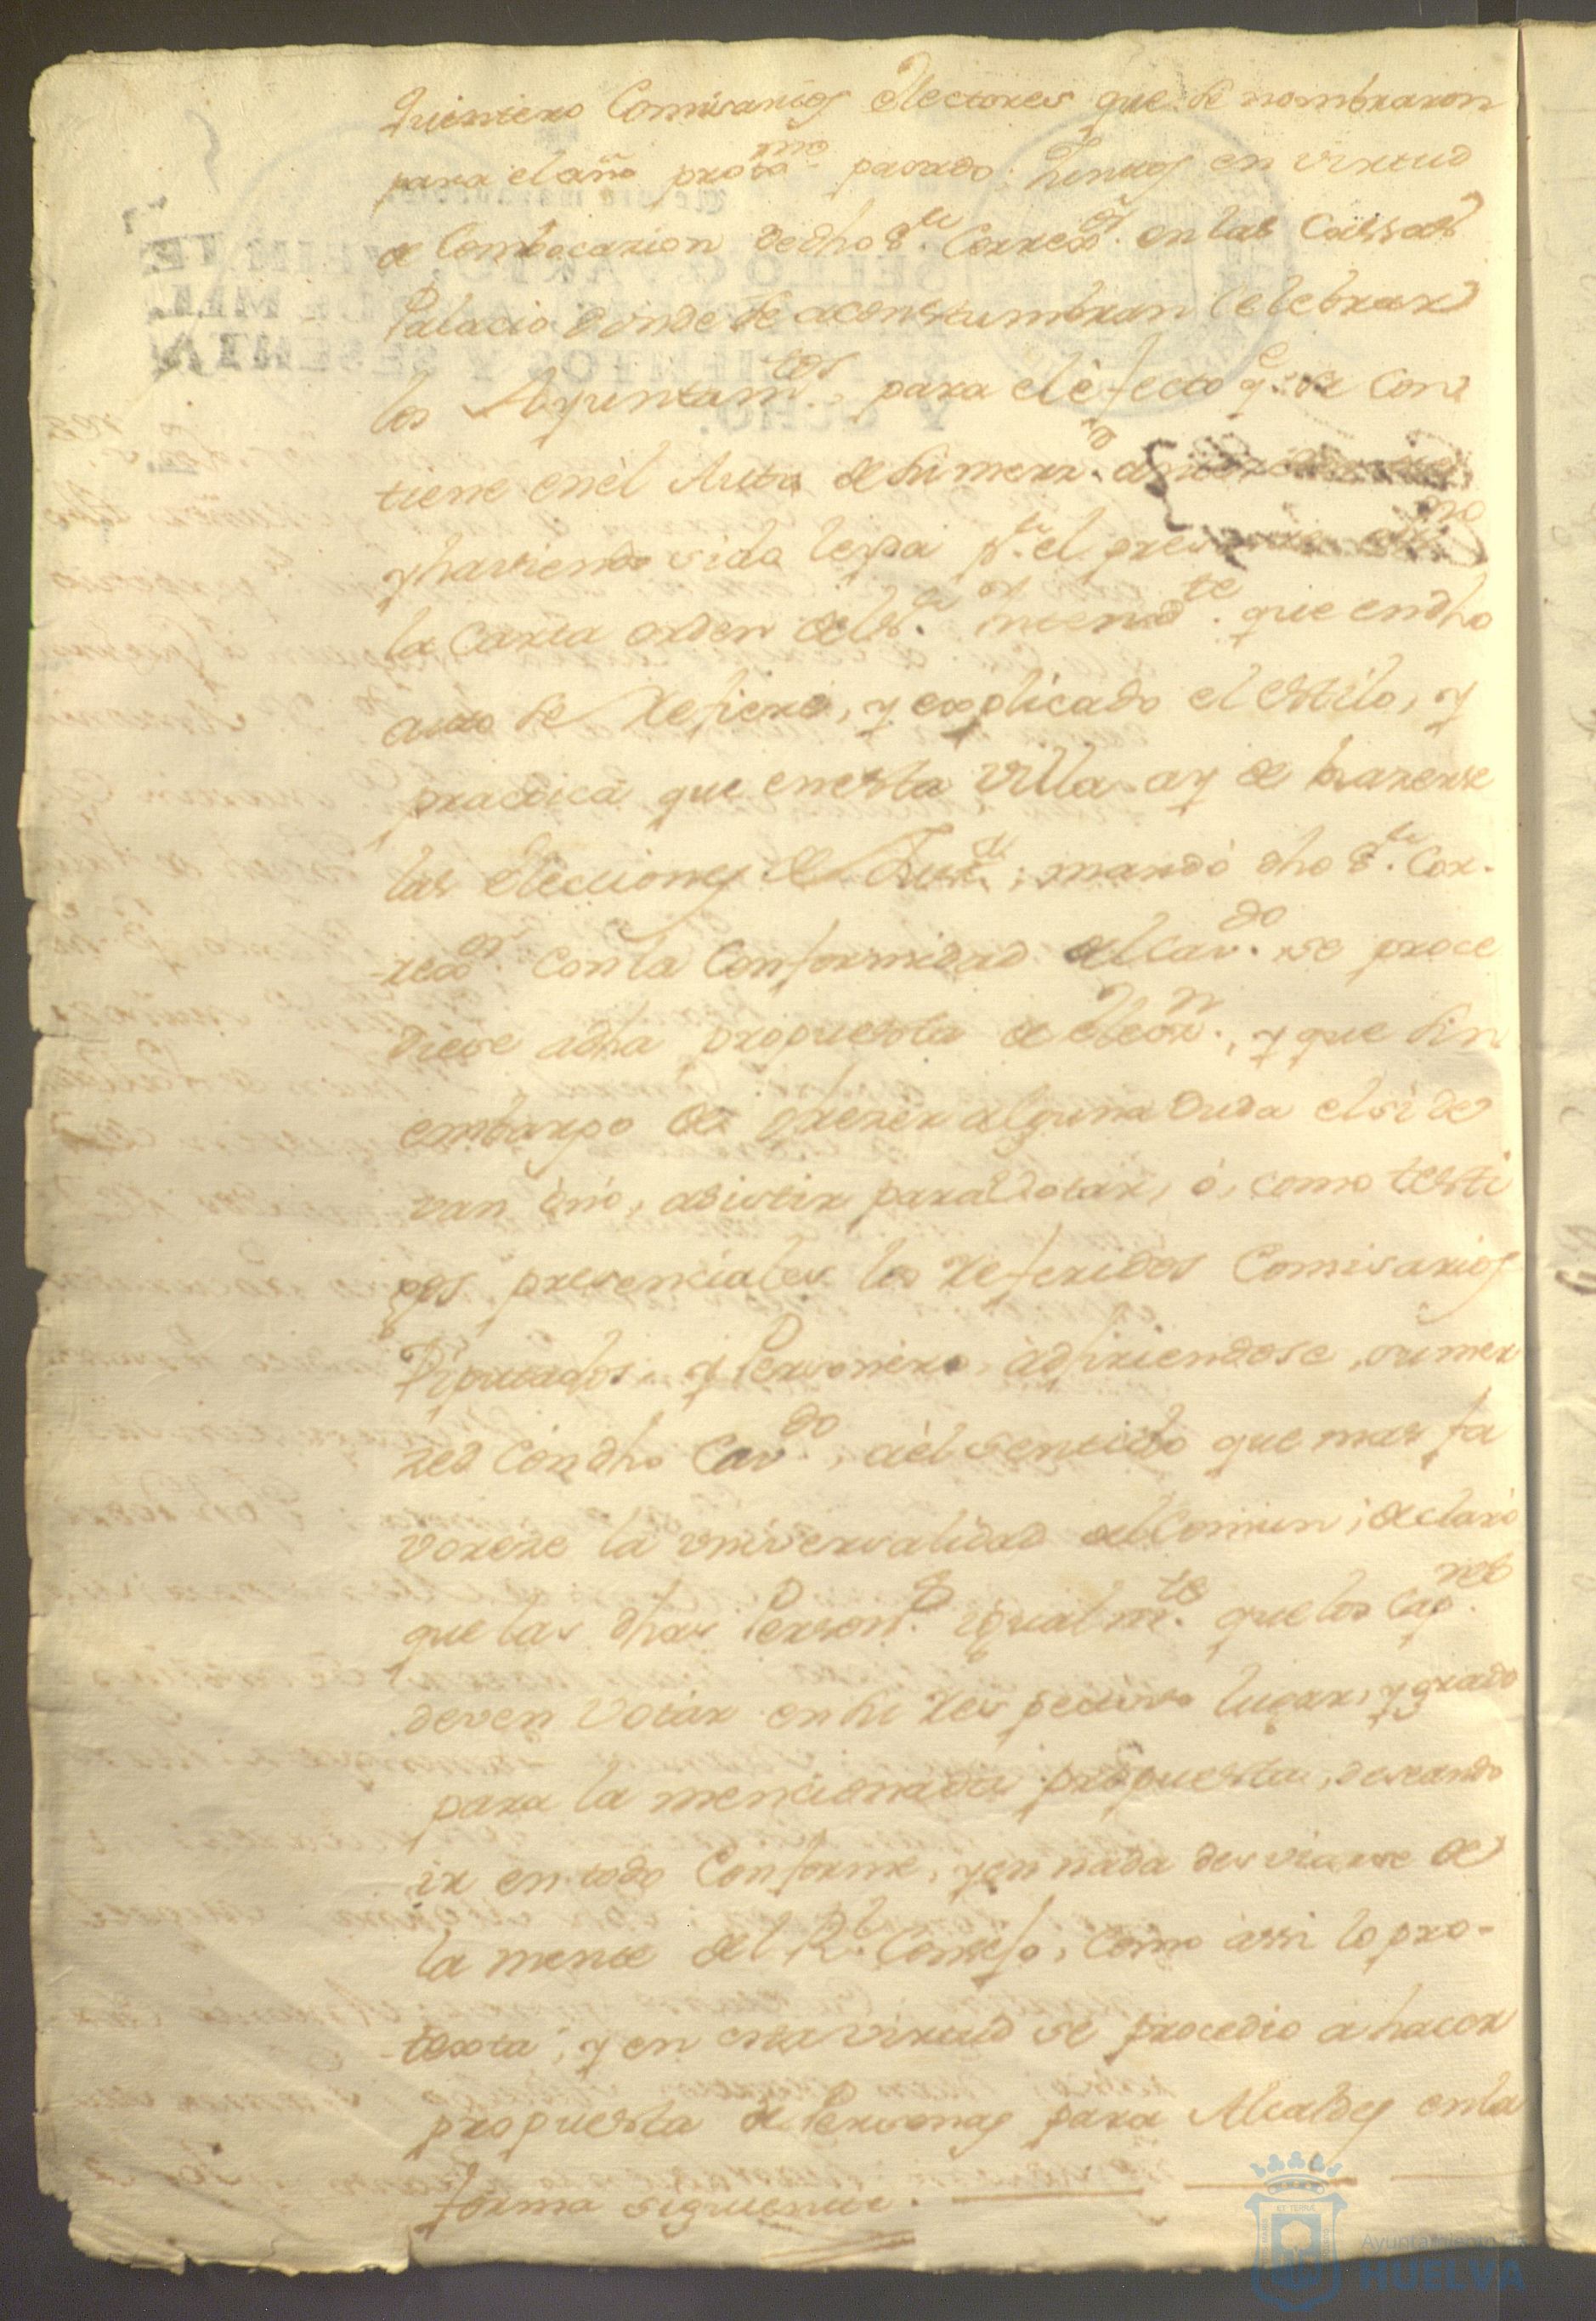 Quintero Comisarios electores que se nombraron
para el año proxmo pasado; Juntos en virtud
de Combocazion de dho Sr. Correxor. en las Cassas
Palacio donde se aconstumbran Celebrar
los Ayuntamtos, para el efecto qe. se con
tiene en el Auto de su merd.
y haviendo sido leyda pr. el presente
la Carta orden del Sr. Intendte. que en dho
auto se Refiere, y explicado el estilo, y
practica que en esta Villa ay de hazerse
las elecciones de Justa.; mandó dho Sr. Cor-
rexor. con la Conformidad del Cavdo. se proce
diese a dha propuesta de eleczn., y que sin
embargo de ofrezer alguna duda el si de
van ò nó, asistir para Votar, ó, como testi
gos presenciales los Referidos Comisarios
Diputados, y Personero, adhiriendose, su mer
zed con dho Cavdo, àel sentido que mas fa
voreze la universalidad del Comun; declaró
que las dhas Person.s igualmte. que los Capres
deven Votar en su respectivo lugar, y grado
para la mencionada propuesta, deseando
ir en todo Conforme, y en nada desviarse de
la mente del Rl. Consejo, como assi lo pro-
texta; y en esta virtud se procedio a hacer
propuesta de Personas para Alcaldes en la
forma siguiente.
Ayuntamiento de
HUELVA